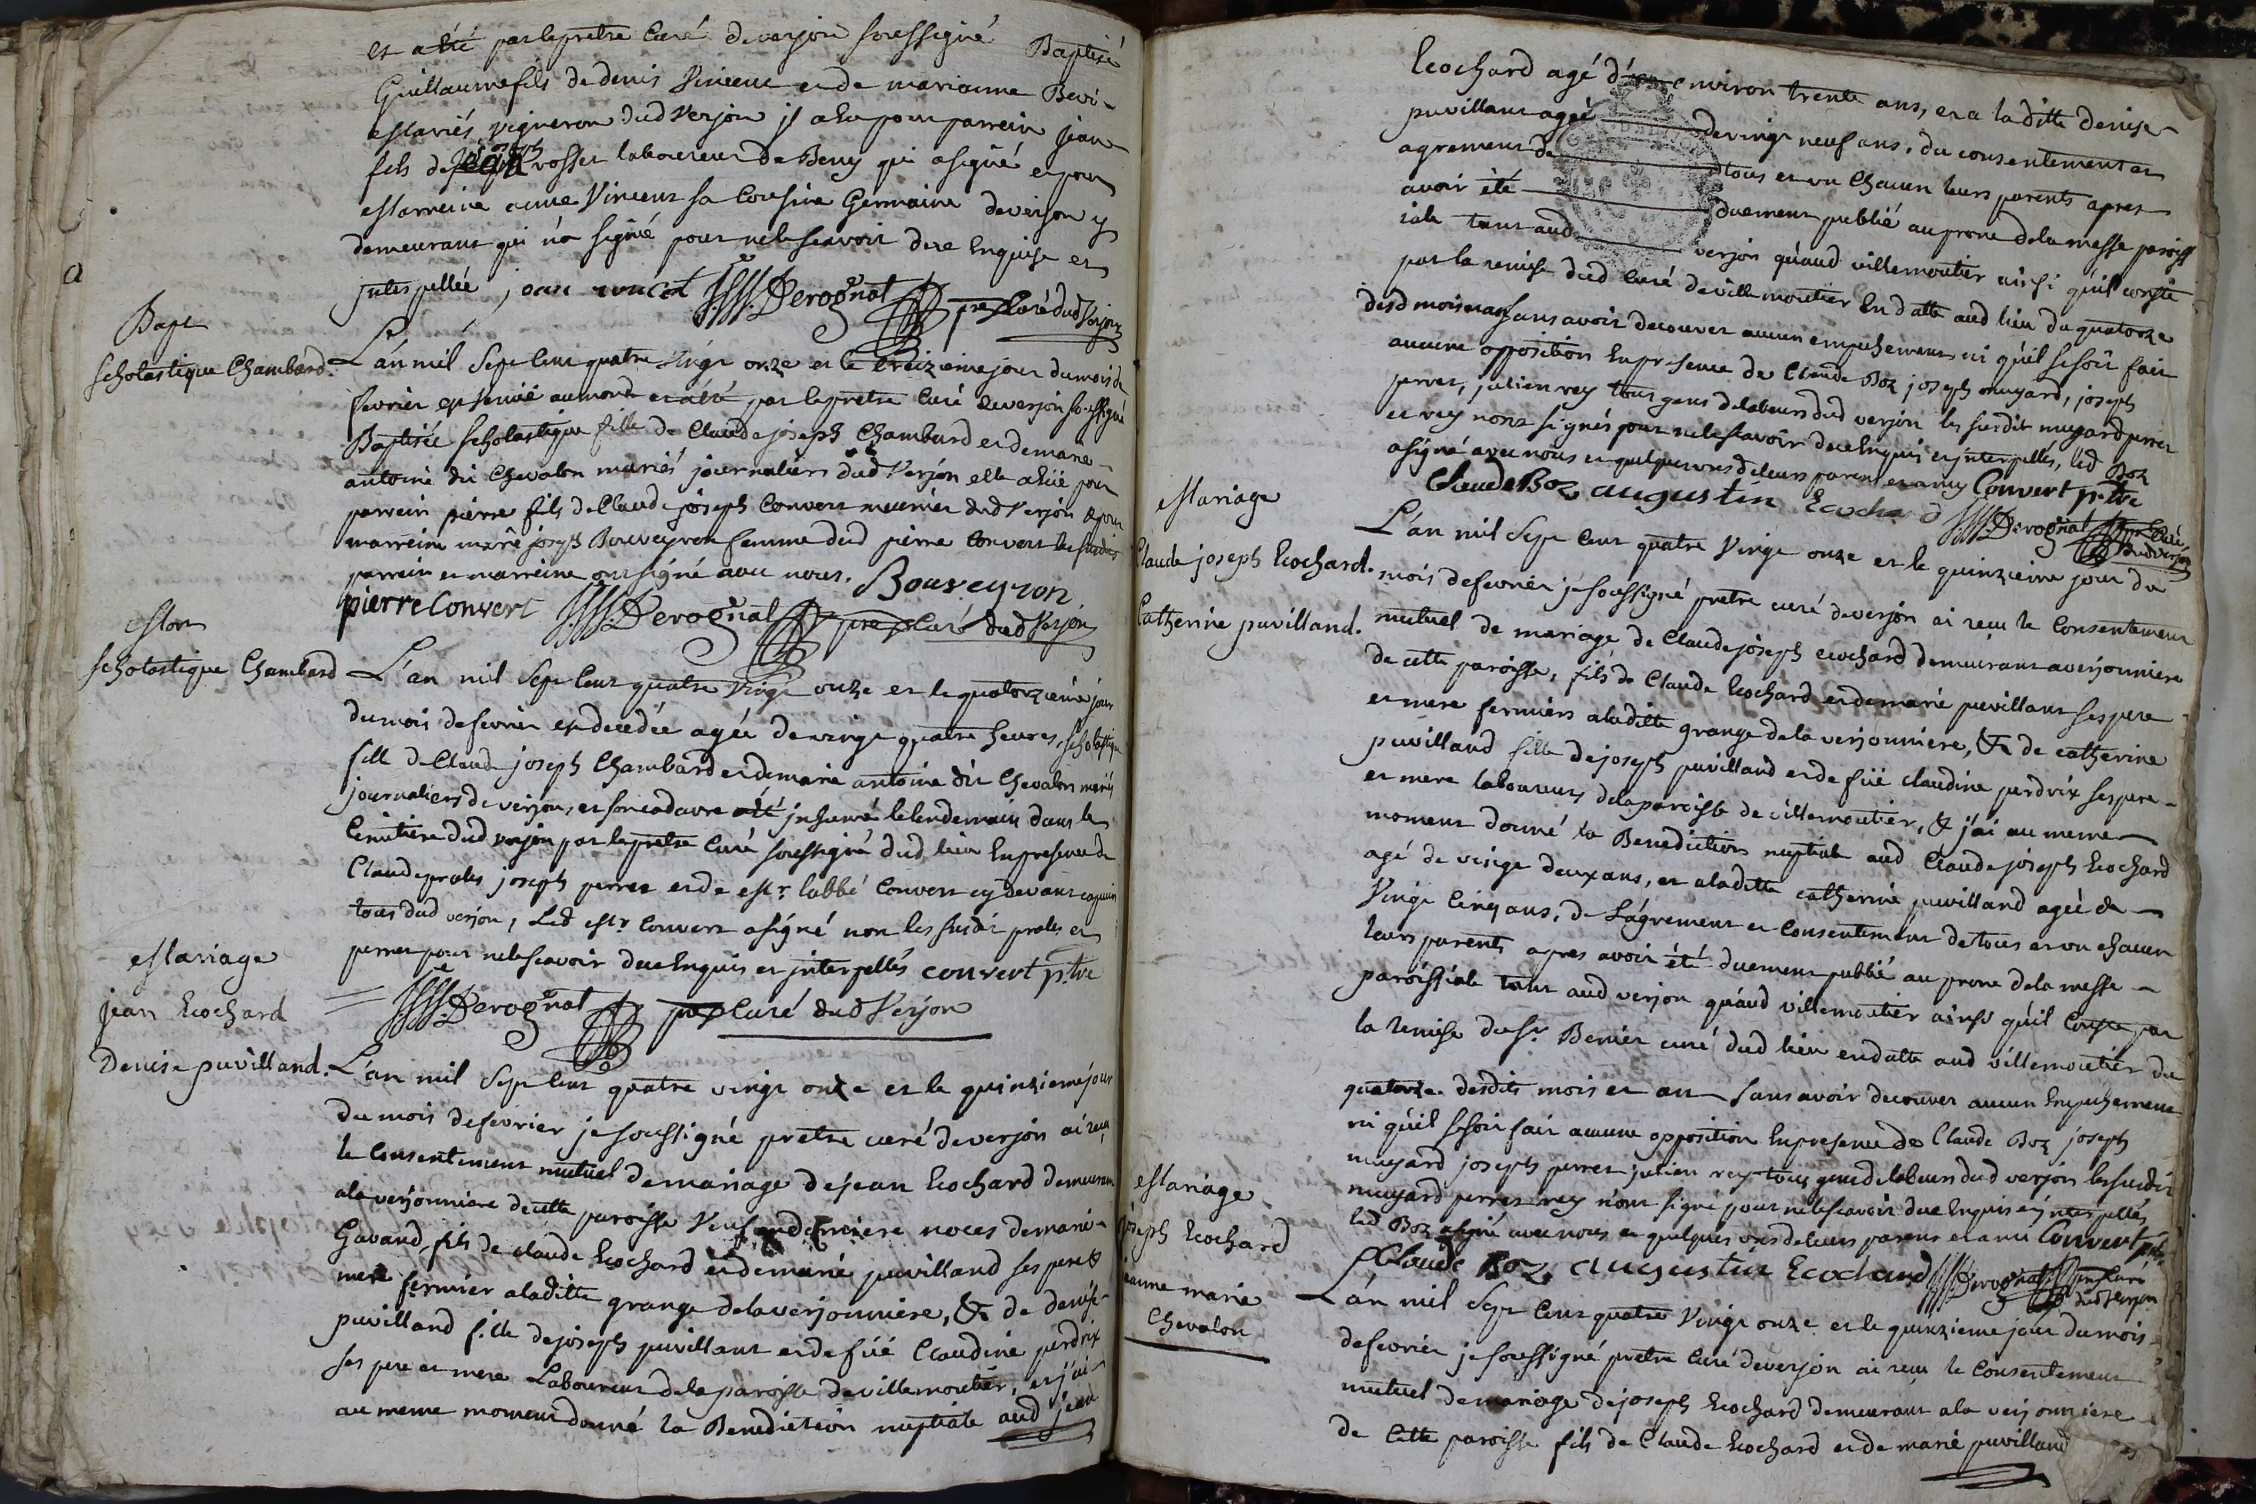 et a été par le pretre Curé de verjon soussigné Baptisé
Guillaume fils de denis Vincent et de marianne Bevi-
Mariés vigneron dud Verjon il a eu pour parrein jean
fils de rosset laboureur de Beny qui a signé et pour
Marreine anne Vincent sa Cousine Germaine de verjon y
demeurant qui n'a signé pour ne le scavoir de ce Enquise et
jnterpellée, Derognat pre Curé dud Verjon
Bapt
Scholastique Chambard.
L'an mil Sept Cent quatre vingt onze et le treizieme jour du mois de
fevrier est venüe au monde et a été par le pretre Curé de verjon soussigné
Baptisée Scholastique fille de Claude joseph Chambard et de marie
antoine dit Chevalon mariés journaliers dud Verjon elle a eüe pour
parrein pierre fils de Claude joseph Convert meunier dud Verjon et pour
marreine marie joseph Bouveyron femme dud pierre Convert les susdits
parrein et marreine ont signé avec nous. Bouveyron
pierre Convert Derognat pre Curé dud Verjon
Mort
Scholastique Chambard
L'an mil Sept Cent quatre Vingt onze et le quatorzieme jour
du mois de fevrier est decedée agée de vingt quatre heures, Scholastique
fille de Claude joseph Chambard et de marie antoine dit Chevalon mariés
journaliers de verjon, et son cadavre a été jnhumé le lendemain dans le
Cimitiere dud verjon par le pretre Curé soussigné dud lieu En presence de
Claude prolis joseph perret et de Mr. labbé Convert cy devant capucin
tous dud verjon, Led Mr. Convert a signé non les susdit prolis et
perret pour ne le scavoir de ce Enquis et jnterpellés convert ptre
Derognat pre Curé dud Verjon
Mariage
jean Ecochard
Denise puvilland.
L'an mil Sept Cent quatre vingt onze et le quinzieme jour
du mois de fevrier je soussigné pretre curé de verjon ai reçu
le Consentement mutuel de mariage de jean Ecochard demeurant
a la verjonniere de cette paroisse Veuf en derniere noces de marie
Gavand, fils de claude Ecochard et de marie puvilland ses pere &
mere fermier a la ditte grange de la verjonniere, & de denise
puvilland fille de joseph puvilland et de füe Claudine perdrix
ses pere et mere Laboureur de la paroisse de villemoutier, et j'ai
au meme moment donné la Benediction nuptiale aud jean
Ecochard agé d'environ trente ans, et a la ditte denise
puvilland agée de vingt neuf ans, du consentement et
agrement de tous et un Chacun leurs parents apres
avoir été duement publié au prone de la messe paroiss
iale tant aud verjon qu'aud villemoutier ainsi qu'il conste
par la remise dud Curé de villemoutier En datte aud lieu du quatorze
desd mois et an sans avoir decouvert aucun empechement ni qu'il se soit fait
aucune opposition En presence de Claude Boz joseph mugard, joseph
perret, julien rey tous gens de labeur dud verjon les susdit mugard perret
et rey n'ont signés pour ne le scavoir de ce Enquis et jnterpellés, led Boz
a signé avec nous et quelques uns de leurs parent et amy Convert ptre
Claude Boz augustin Ecochard Derognat pre Curé
dud verjon
Mariage
Claude joseph Ecochard.
Catherine puvilland.
L'an mil Sept Cent quatre Vingt onze et le quinzieme jour du
mois de fevrier je soussigné pretre curé de verjon ai reçu le Consentement
mutuel de mariage de Claude joseph ecochard demeurant a verjonniere
de cette paroisse, fils de Claude Ecochard et de marie puvilland ses pere
et mere fermiers a la ditte grange de la verjonniere, & de catherine
puvilland fille de joseph puvilland et de füe claudine perdrix ses pere
et mere laboureurs de la paroisse de villemoutier, & j'ai au meme
moment donné la Benediction nuptiale aud Claude joseph Ecochard
agé de vingt deux ans, et a la ditte catherine puvilland agée de
Vingt Cinq ans, de L'agrement et Consentement de tous et un chacun
leurs parents apres avoir été duement publié au prone de la messe
paroissiale tant aud verjon qu'aud villemoutier ainsi qu'il Conste par
la remise du Sr. Bernier curé dud lieu en datte aud villemoutier du
quatorze desdits mois et an sans avoir decouvert aucun Empechement
ni qu'il se soit fait aucune opposition En presence de Claude Boz joseph
mugard joseph perret julien rey tous gens de labeur dud verjon les susdits
mugard perret rey n'ont signé pour ne le scavoir de ce Enquis et jnterpellés,
led Boz a signé avec nous et quelques uns de leurs parens et amis Convert ptre
Claude Boz augustin Ecochard Derognat pre Curé
dud Verjon
Mariage
joseph Ecochard
jeanne marie
Chevalon
L'an mil Sept Cent quatre Vingt onze et le quinzieme jour du mois
de fevrier je soussigné pretre Curé de verjon ai reçu le Consentement
mutuel de mariage de joseph Ecochard demeurant a la verjonniere
de Cette paroisse fils de Claude Ecochard et de marie puvilland